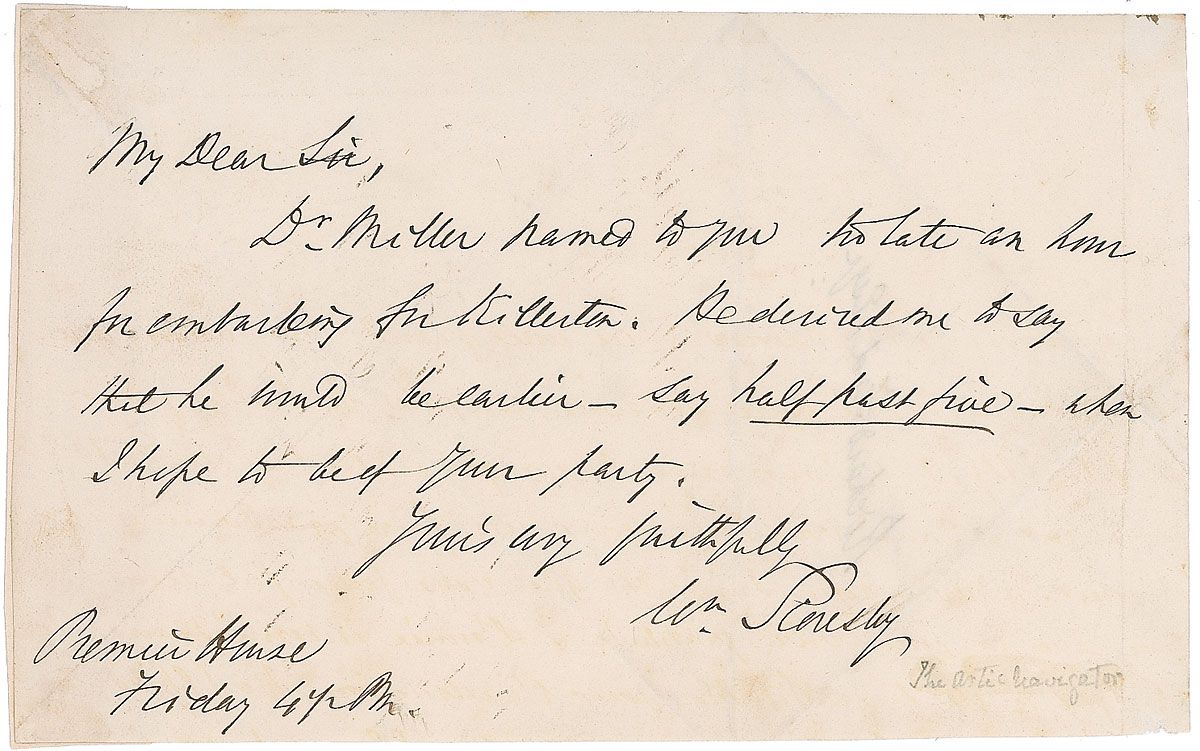 My Dear Sir,
Dr. Miller named to you too late an hour
for embarking for Killerton. He desired me to say
that he would be earlier – say half past five – when
I hope to be of your party.
Yours very faithfully
Wm. Scoresby
Premier House
Friday 4 p.m.
The Artic Navigator